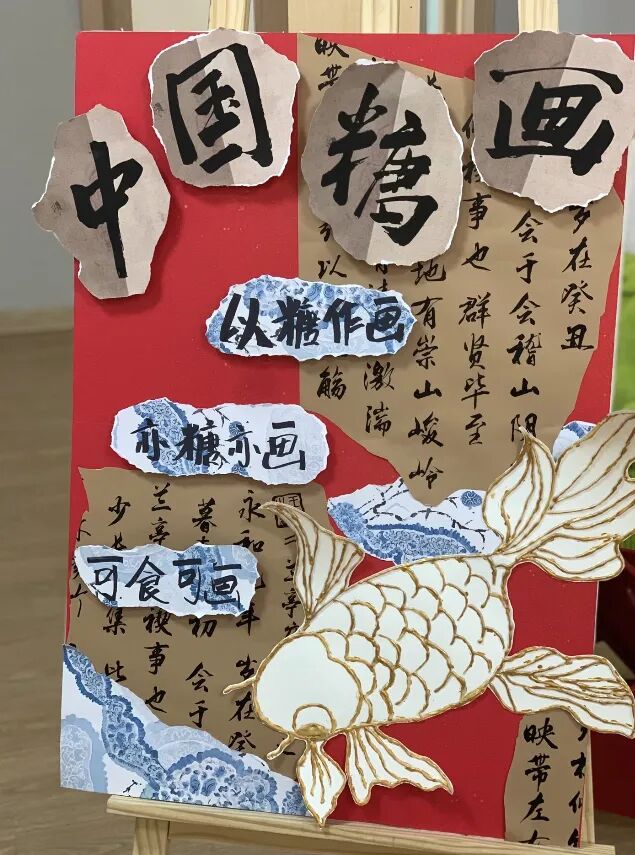 中国糖画
以糖作画
亦糖亦画
可食可画
岁在癸丑
会于会稽山阴
禊事也群贤毕至
地有崇山峻岭
激湍
映带
以
觞
兰亭
永和
年岁在癸
暮
初会于
兰亭
禊事也
少
集此
映带左